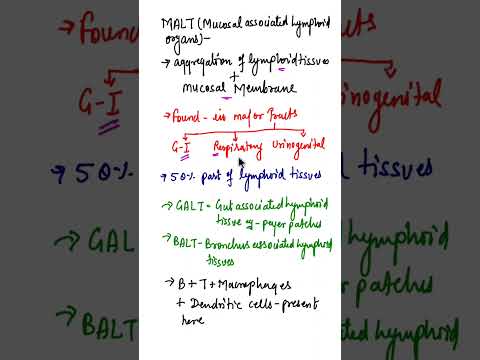 MALT (Mucosal associated lymphoid
organs)-
→ aggregation of lymphoid tissues
+
mucosal Membrane
→ found - in major tracts
G-I Respiratory Urinogenital
→ 50% part of lymphoid tissues
→ GALT = Gut associated lymphoid
tissue eg - peyer patches
→ BALT - Bronchus associated lymphoid
tissues
→ B + T + Macrophages
+ Dendritic cells - present
here